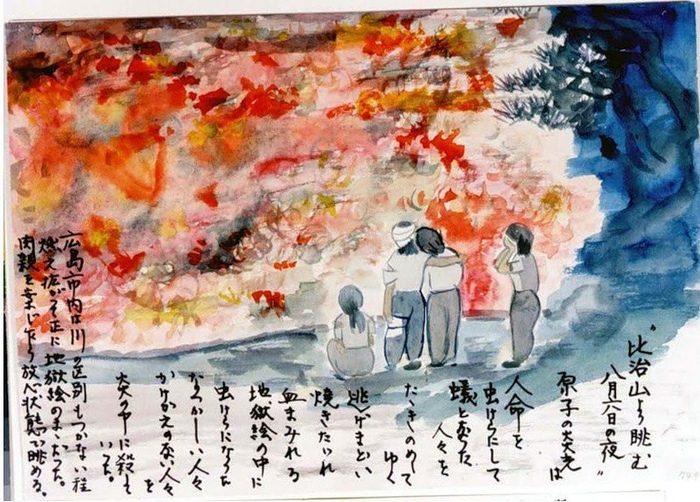 "比治山より眺む
八月六日の夜"
原子の炎光は
人命を
虫けらにして
人々を
たゝきのめして
ゆく
逃げまどい
焼きたゞれ
血まみれる
地獄絵の中に
虫けらになった
なつかしい人々
かけがえのない人々を
炎の中に殺して
いった。
広島市内は川の区別もつかない程
燃え拡がり正に地獄絵のまゝだった。
肉親を案じ乍ら放心状態で眺める。